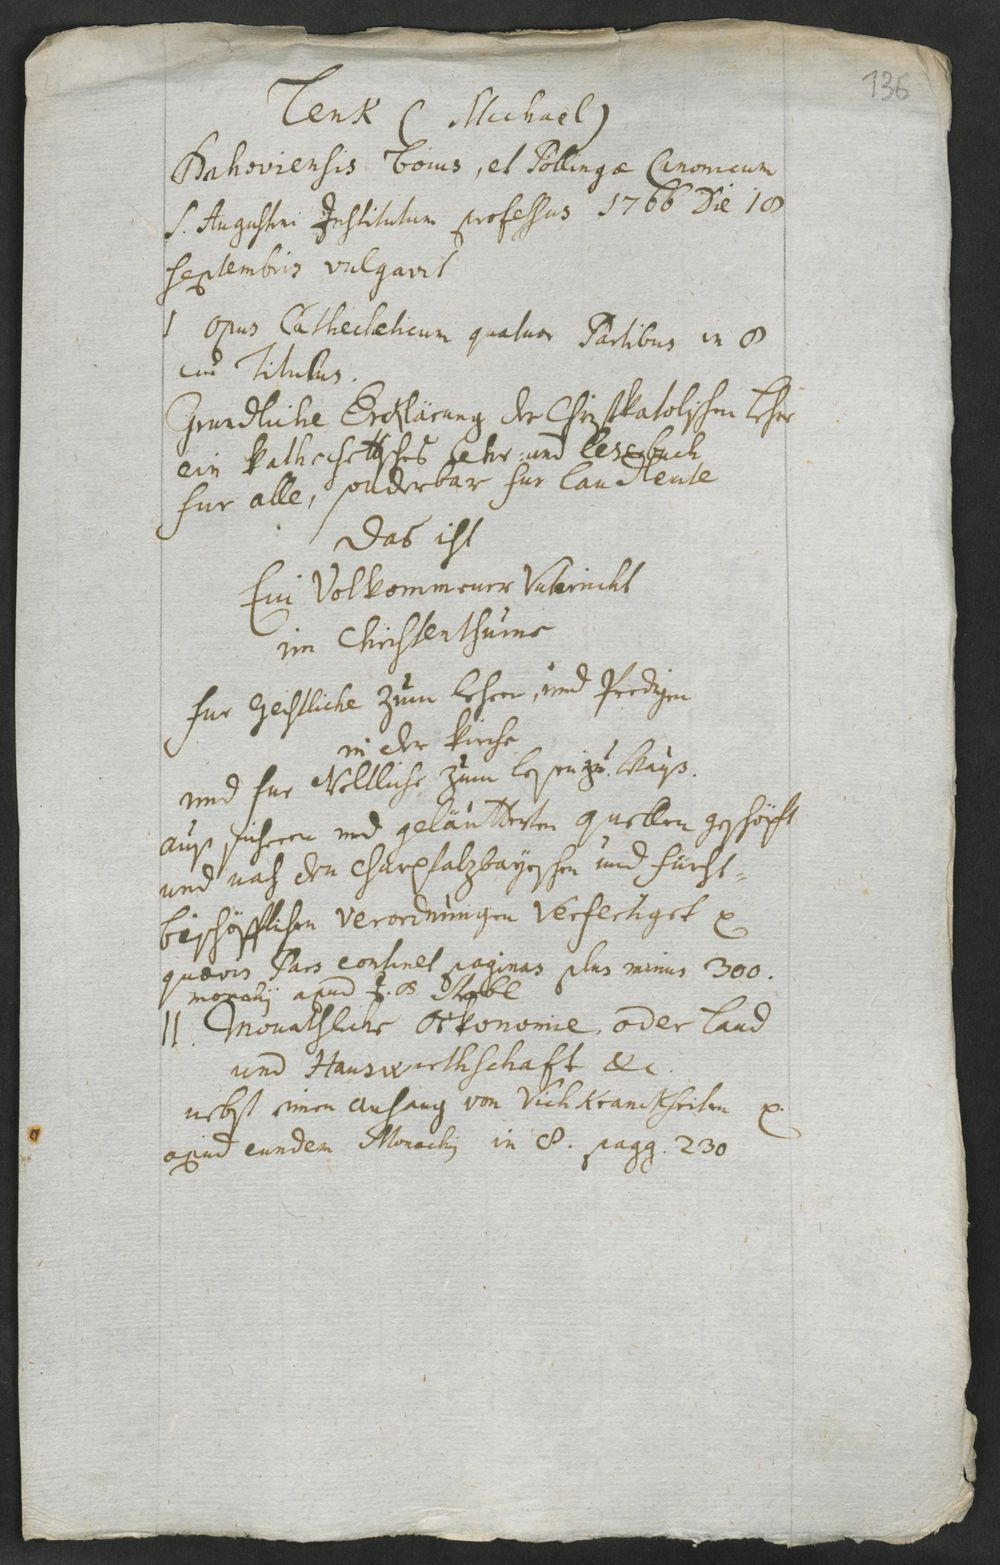 136
Tenk ( Michael )
Dachoviensis Boius, et Pollingæ Canonicum
S. Augustini Institutum professus 1766 Die 18
Septembris vulgavit
I opus Cathechelicum quatuor Partibus in 8
cui Titulus.
Grundliche Erklärung der Christkatolischen Lehre
ein kathechettisches Lehr: und lesebuch
fur alle, sonderbar fur Landleute
Das ist
Ein Volkommener Unterricht
im Christenthume
fur Geistliche zum lehren, und Predigen
in der kirche
und fur Weltliche zum lesen zu Hauß.
auß sicheren und geläutterten quellen geschöpft
und nach den Churpfalzbayrschen und fürst-
bischöfflichen Verordnungen Verfertiget
quævis Pars continet paginas plus minus 300.
monachij apud J. B Strobl
II. Monathliche Oekonomie, oder Land
und Hauswirthschaft &c.
nebst einem Anhang von Viehkranckheiten
apud eundem Monachij in 8. pagg. 230